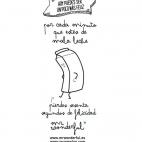 HOY PUEDES SER
por cada minuto
que estés de
mala leche
pierdes sesenta
segundos de felicidad
mr.
wonderful*
www.mrwonderful.es